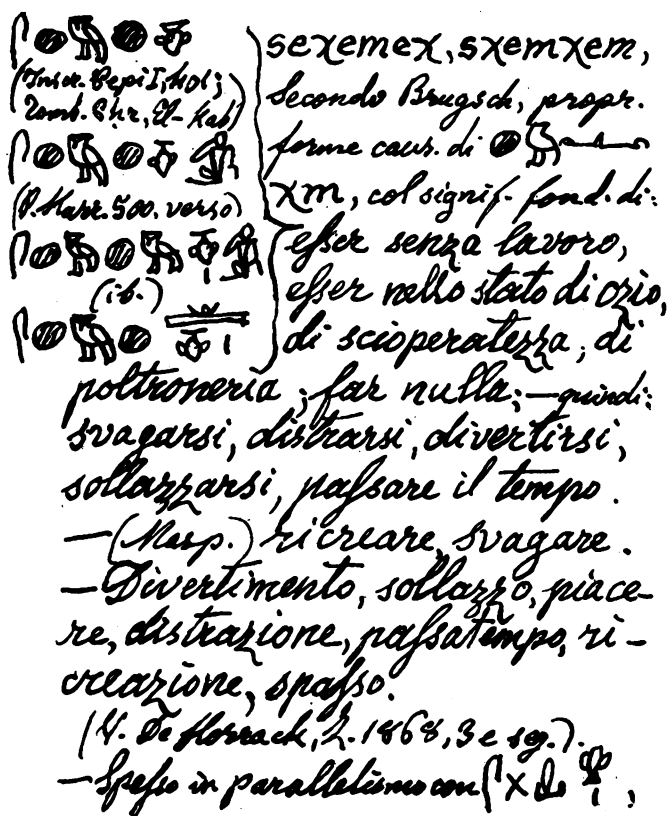 𓋴𓐍𓅓𓐍𓄣
(Inscr. Pepi I, 401;
Tomb. Chr., El-Kab)
𓋴𓐍𓅓𓐍𓄣𓀁
(P. Harr. 500. verso)
𓋴𓐍𓅓𓐍𓅓𓄣𓏤𓀁
(ib.)
𓋴𓐍𓅓𓐍
seχemeχ, sχemχem,
Secondo Brugsch, propr.
forme caus. di 𓐍𓅓
χm, col signif. fond. di:
eſser senza lavoro,
eſser nello stato di ozio,
di scioperatezza, di
poltroneria; far nulla; — quindi:
svagarsi, distrarsi, divertirsi,
sollazzarsi, paſsare il tempo.
— (Masp.) ricreare, svagare.
— Divertimento, sollazzo, piace-
re, distrazione, paſsatempo, ri-
creazione, spaſso.
(V. De Horrack, Z. 1868, 3 e seg.).
— Speſso in parallelismo con